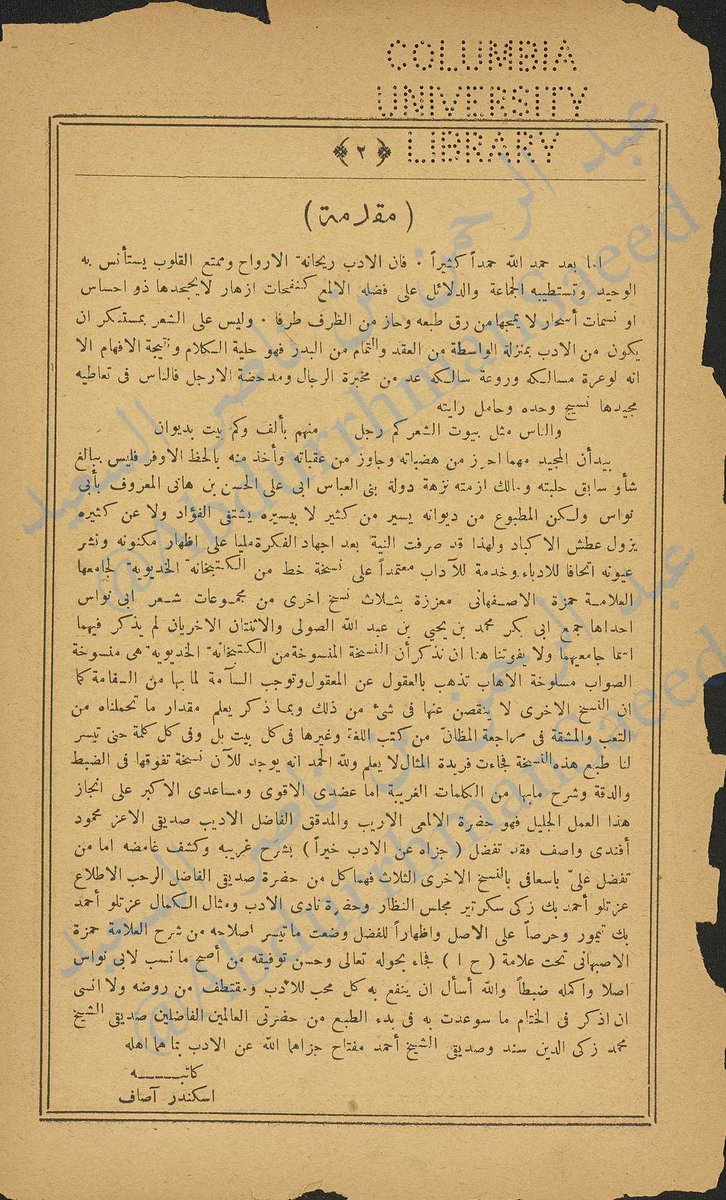 COLUMBIA
UNIVERSITY
LIBRARY
﴿ ٢ ﴾
( مقدمة )
اما بعد حمد الله حمداً كثيراً . فان الادب ريحانة الارواح وممتع القلوب يستأنس به
الوحيد وتستطيبه الجماعة والدلائل على فضله الالمع كنفحات ازهار لا يجحدها ذو احساس
او نسمات أسحار لا يمجها من رق طبعه وحاز من الظرف طرفا . وليس على الشعر بمستنكر ان
يكون من الادب بمنزلة الواسطة من العقد والتمام من البدر فهو حلية الكلام ونتيجة الافهام الا
انه لوعرة مسالكه وروعة سالكه عد من مخبرة الرجال ومدحضة الارجل فالناس فى تعاطيه
مجيدها نسيج وحده وحامل رايته
والناس مثل بيوت الشعر كم رجل منهم بألف وكم بيت بديوان
بيد أن المجيد مهما احرز من هضباته وجاوز من عقباته وأخذ منه بالحظ الاوفر فليس ببالغ
شأو سابق حلبته ومالك ازمته نزهة دولة بنى العباس ابى على الحسن بن هانى المعروف بأبى
نواس ولكن المطبوع من ديوانه يسير من كثير لا بيسيره يشتفى الفؤاد ولا عن كثيره
يزول عطش الاكباد ولهذا قد صرفت النية بعد اجهاد الفكرة مليا على اظهار مكنونه ونشر
عيونه اتحافا للادباء وخدمة للآداب معتمداً على نسخة خط من الكتبخانة الخديوية لجامعها
العلامة حمزة الاصفهانى معززة بثلاث نسخ اخرى من مجموعات شعر ابى نواس
احداها جمع ابى بكر محمد بن يحيى بن عبد الله الصولى والاثنتان الاخريان لم يذكر فيهما
اسما جامعيهما ولا يفوتنا هنا ان نذكر أن النسخة المنسوخة من الكتبخانة الخديوية هى منسوخة
الصواب مسلوخة الاهاب تذهب بالعقول عن المعقول وتوجب السآمة لما بها من السقامة كما
ان النسخ الاخرى لا ينقصن عنها فى شئ من ذلك وبما ذكر يعلم مقدار ما تحملناه من
التعب والمشقة فى مراجعة المظان من كتب اللغة وغيرها فى كل بيت بل وفى كل كلمة حتى تيسر
لنا طبع هذه النسخة فجاءت فريدة المثال لا يعلم ولله الحمد انه يوجد للآن نسخة تفوقها فى الضبط
والدقة وشرح ما بها من الكلمات الغريبة اما عضدى الاقوى ومساعدى الاكبر على انجاز
هذا العمل الجليل فهو حضرة الالمعى الاريب والمدقق الفاضل الاديب صديقى الاعز محمود
أفندى واصف فقد تفضل ( جزاه عن الادب خيراً ) بشرح غريبه وكشف غامضه اما من
تفضل علىّ باسعافى بالنسخ الاخرى الثلاث فهما كل من حضرة صديقى الفاضل الرحب الاطلاع
عزتلو أحمد بك زكى سكرتير مجلس النظار وحضرة نادى الادب ومثال الكمال عزتلو أحمد
بك تيمور وحرصاً على الاصل واظهاراً للفضل وضعت ما تيسر اصلاحه من شرح العلامة حمزة
الاصبهانى تحت علامة ( ح ا ) فجاء بحوله تعالى وحسن توفيقه من أصح ما نسب لابى نواس
اصلا واكمله ضبطاً والله أسأل ان ينفع به كل محب للأدب ومقتطف من روضه ولا انسى
ان اذكر فى الختام ما سوعدت به فى بدء الطبع من حضرتى العالمين الفاضلين صديقى الشيخ
محمد زكى الدين سند وصديقى الشيخ أحمد مفتاح جزاهما الله عن الادب بما هما اهله
كاتبه
اسكندر آصاف
عبد الرحمن بن ناصر السعيد
@Abdurrhmansaeed
عبد الرحمن بن ناصر السعيد
@Abdurrhmansaeed